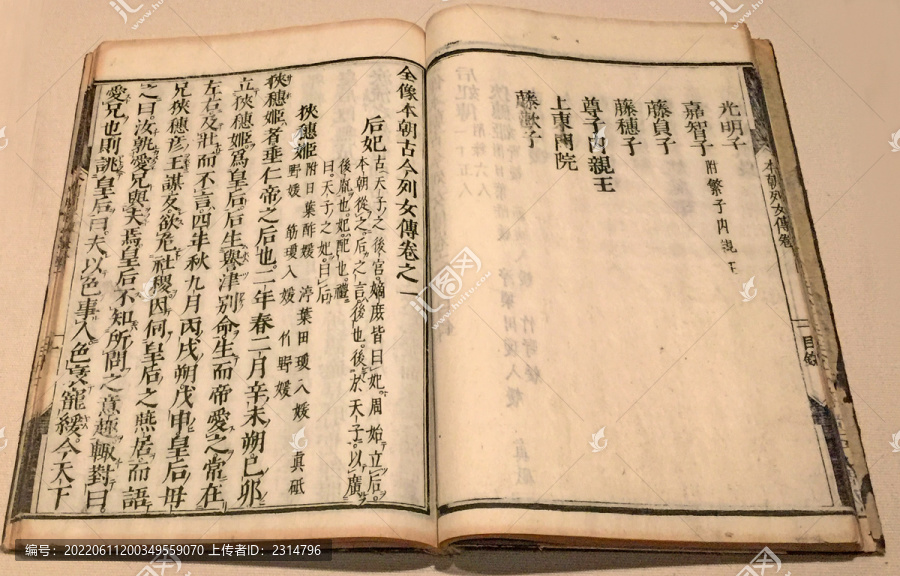 光明子
嘉智子 附繁子内親王
藤貞子
藤穗子
尊子内親王
上東門院
藤歡子
本朝列女傳卷一 目録
全像本朝古今列女傳卷之一
后妃 古天子之後宮嫡庶皆曰妃周始立后
本朝從之后之言後也後於天子以廣
後胤也妃配也禮
曰天子之妃曰后
狹穗姬 附日葉酢媛 渟葉田瓊入媛 真砥
野媛 筋瓊入媛 竹野媛
狹穗姬者垂仁帝之后也二年春二月辛未朔己卯
立狹穗姬為皇后后生譽津別命生而帝愛之常在
左右及壯而不言四年秋九月丙戌朔戊申皇后母
兄狹穗彦王謀反欲危社稷因伺皇后之燕居而語
之曰汝孰愛兄與夫焉皇后不知所問之意趣輒對曰
愛兄也則誂皇后曰夫以色事人色衰寵緩今天下
编号:20220611200349559070 上传者ID:2314796